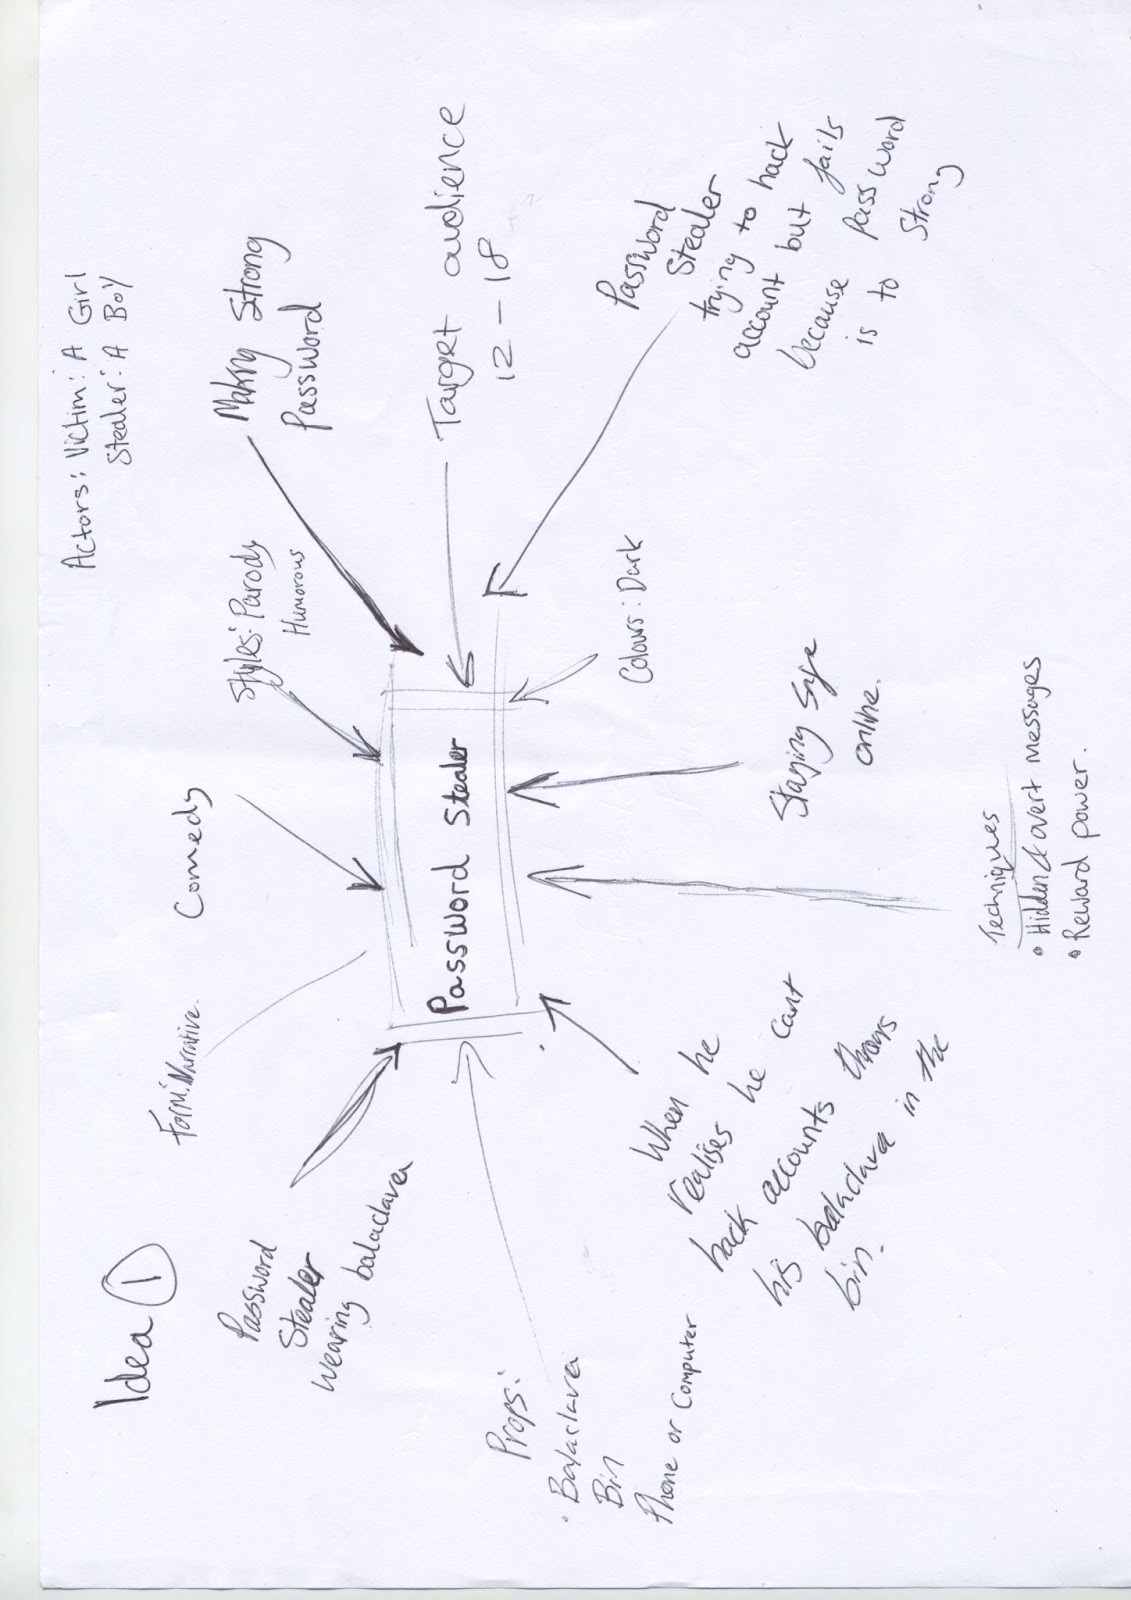 Idea 1
Form: Narrative.
Comedy
Styles: Parody
Humorous
Actors: Victim: A Girl
Stealer: A Boy
Making Strong
Password
Target audience
12 - 18
Password
Stealer
wearing balaclava
Password Stealer
Password
Stealer
trying to hack
account but fails
because password
is to strong
Colours: Dark
Staying safe
online.
Props:
· Balaclava
Bin
Phone or Computer
When he
realises he cant
hack accounts throws
his balaclava in the
bin.
Techniques
• Hidden & overt messages
• Reward power.